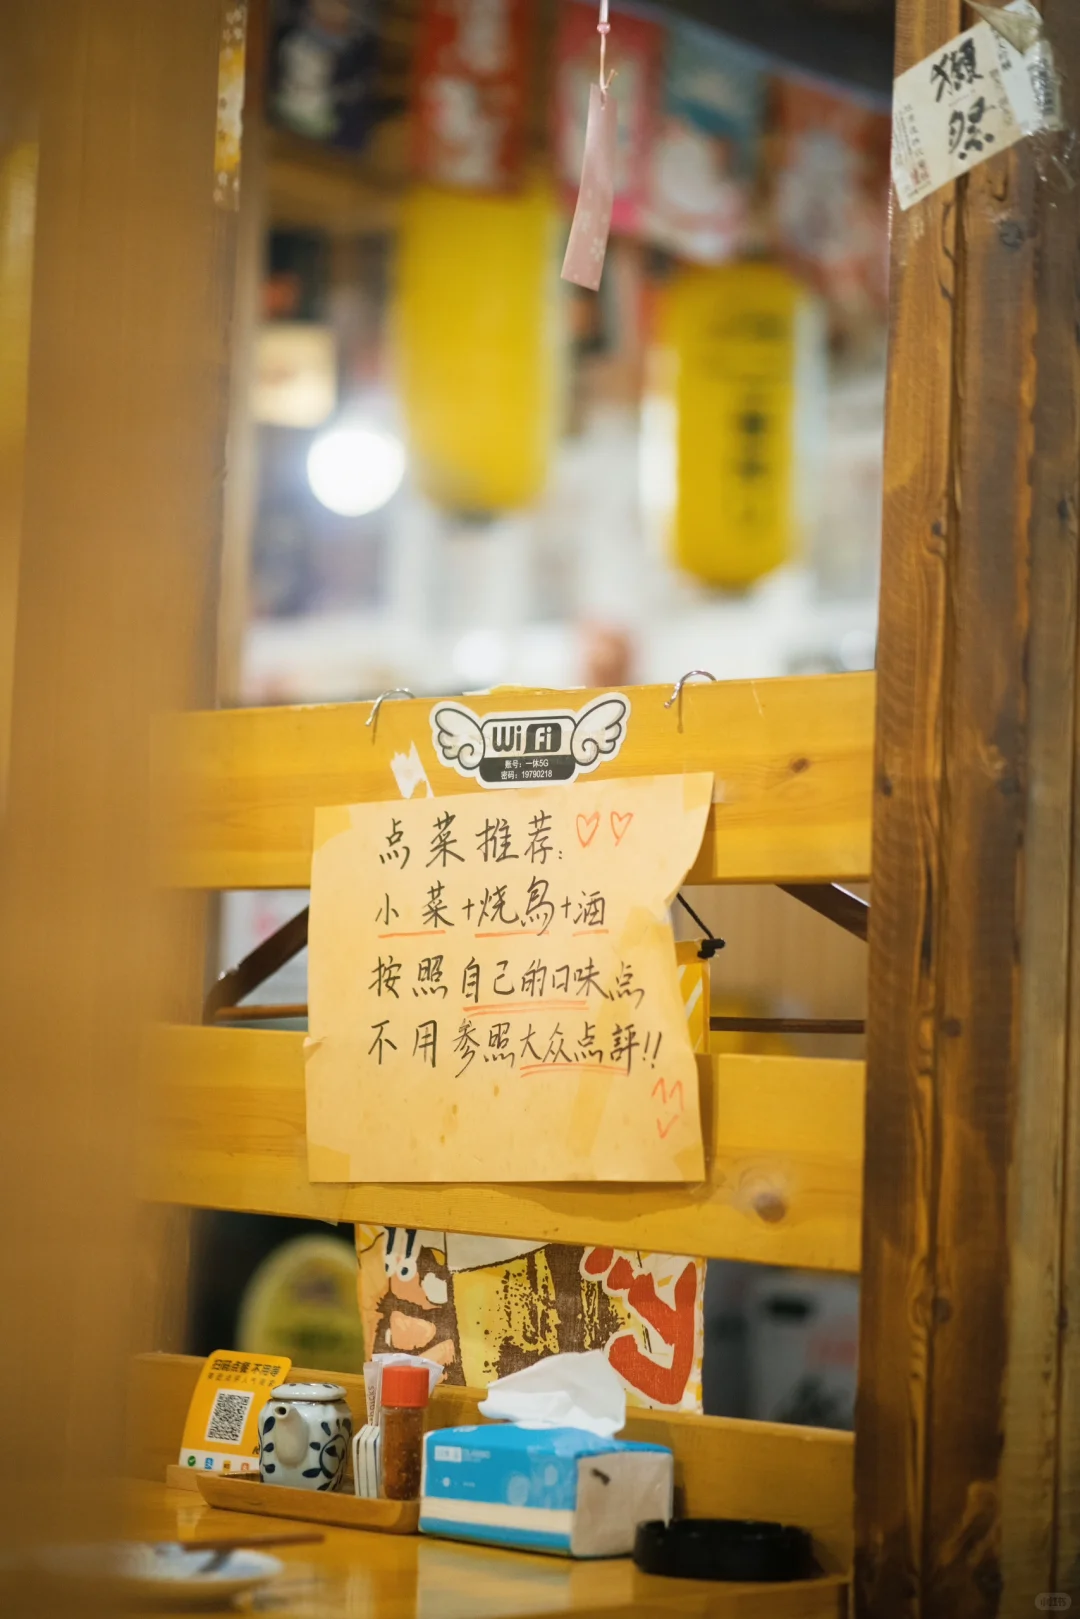 獺祭
WiFi
账号：一休5G
密码：19790218
点菜推荐:
小菜+烧鳥+酒
按照自己的口味点
不用参照大众点評!!
扫码点餐 不用等
小红书